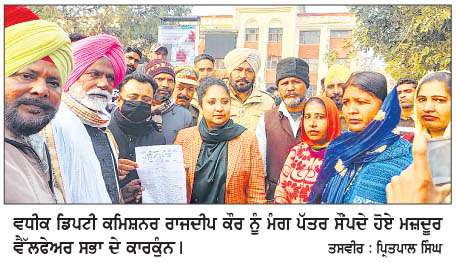 ਵਧੀਕ ਡਿਪਟੀ ਕਮਿਸ਼ਨਰ ਰਾਜਦੀਪ ਕੌਰ ਨੂੰ ਮੰਗ ਪੱਤਰ ਸੌਂਪਦੇ ਹੋਏ ਮਜ਼ਦੂਰ
ਵੈੱਲਫੇਅਰ ਸਭਾ ਦੇ ਕਾਰਕੁੰਨ। ਤਸਵੀਰ : ਪ੍ਰਿਤਪਾਲ ਸਿੰਘ